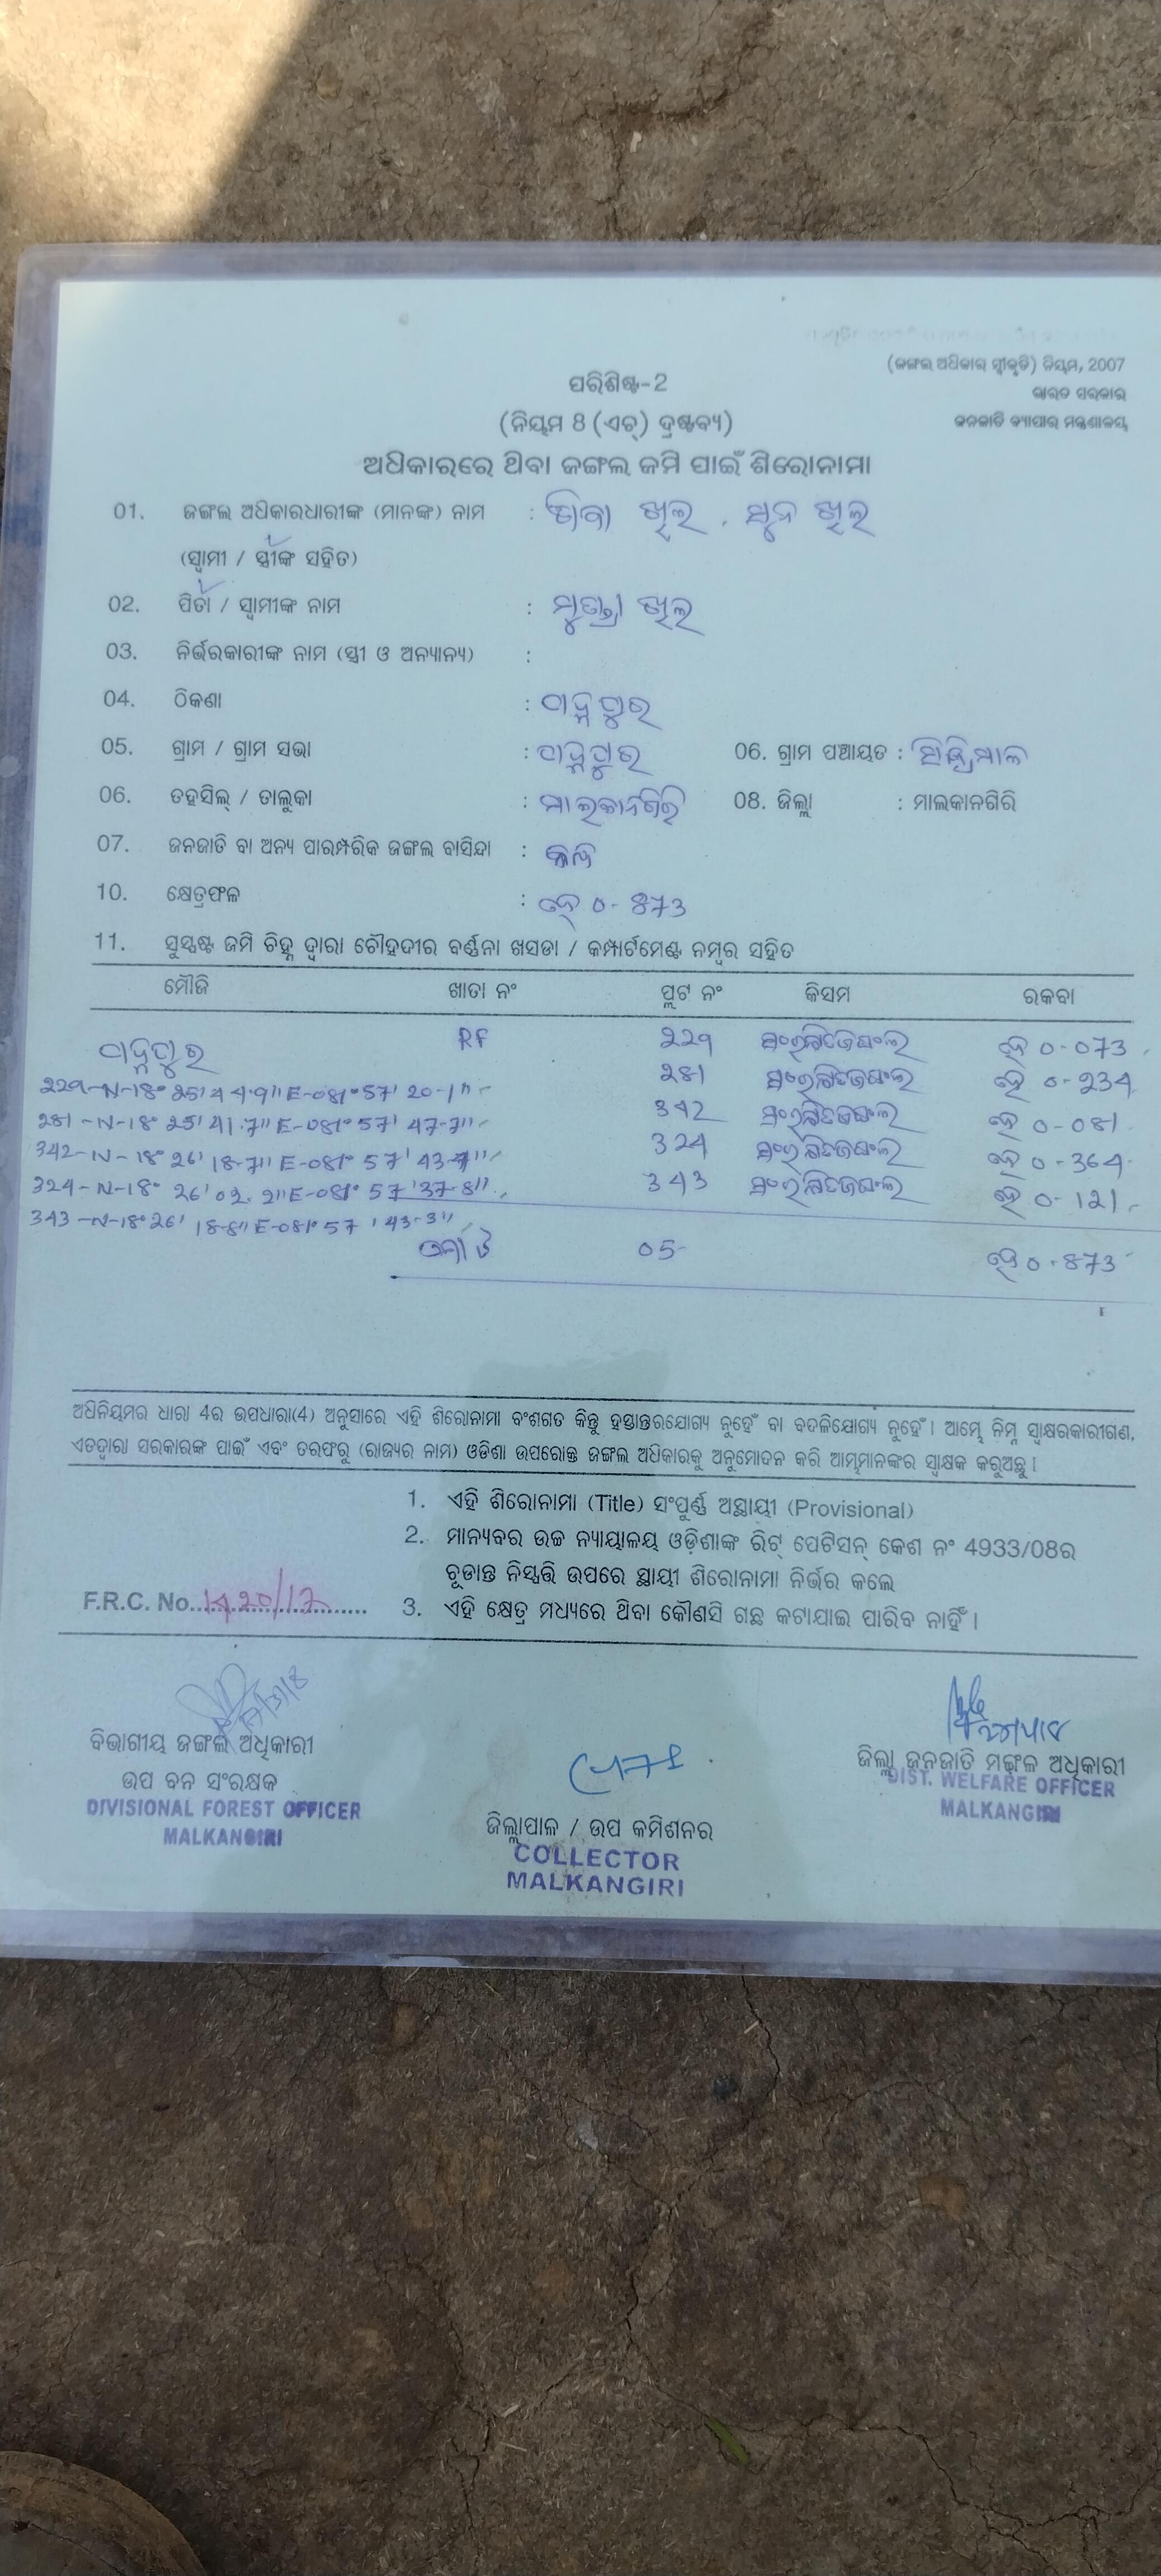 (ଜଙ୍ଗଲ ଅଧିକାର ସ୍ୱୀକୃତି) ନିୟମ, 2007
ଭାରତ ସରକାର
ଜନଜାତି ବ୍ୟାପାର ମନ୍ତ୍ରଣାଳୟ
ପରିଶିଷ୍ଟ-2
(ନିୟମ 8 (ଏଚ୍) ଦ୍ରଷ୍ଟବ୍ୟ)
ଅଧିକାରରେ ଥିବା ଜଙ୍ଗଲ ଜମି ପାଇଁ ଶିରୋନାମା
01. ଜଙ୍ଗଲ ଅଧିକାରଧାରୀଙ୍କ (ମାନଙ୍କ) ନାମ : ଖିଲ , ଖିଲ
(ସ୍ୱାମୀ / ସ୍ତ୍ରୀଙ୍କ ସହିତ)
02. ପିତା / ସ୍ୱାମୀଙ୍କ ନାମ : ଖିଲ
03. ନିର୍ଭରକାରୀଙ୍କ ନାମ (ସ୍ତ୍ରୀ ଓ ଅନ୍ୟାନ୍ୟ) :
04. ଠିକଣା :
05. ଗ୍ରାମ / ଗ୍ରାମ ସଭା : 06. ଗ୍ରାମ ପଞ୍ଚାୟତ :
06. ତହସିଲ୍ / ତାଲୁକା : ମାଲକାନଗିରି 08. ଜିଲ୍ଲା : ମାଲକାନଗିରି
07. ଜନଜାତି ବା ଅନ୍ୟ ପାରମ୍ପରିକ ଜଙ୍ଗଲ ବାସିନ୍ଦା :
10. କ୍ଷେତ୍ରଫଳ : ହେ 0-873
11. ସୁସ୍ପଷ୍ଟ ଜମି ଚିହ୍ନ ଦ୍ୱାରା ଚୌହଦୀର ବର୍ଣ୍ଣନା ଖସଡା / କମ୍ପାର୍ଟମେଣ୍ଟ ନମ୍ବର ସହିତ
ମୌଜି ଖାତା ନଂ ପ୍ଲଟ ନଂ କିସମ ରକବା
RF 229 ହେ 0-073
229-N-18° 25' 44.9" E-081° 57' 20-1" 281 ହେ 0-234
281-N-18° 25' 41.7" E-081° 57' 47-7" 342 ହେ 0-081
342-N-18° 26' 18-7" E-081° 57' 43-7" 324 ହେ 0-364
324-N-18° 26' 02.2" E-081° 57' 37-8" 343 ହେ 0-121
343-N-18° 26' 18-8" E-081° 57' 43-3"
05 ହେ 0-873
ଅଧିନିୟମର ଧାରା 4ର ଉପଧାରା(4) ଅନୁସାରେ ଏହି ଶିରୋନାମା ବଂଶଗତ କିନ୍ତୁ ହସ୍ତାନ୍ତରଯୋଗ୍ୟ ନୁହେଁ ବା ବଦଳିକ୍ଷୋଗ୍ୟ ନୁହେଁ। ଆମ୍ଭେ ନିମ୍ନ ସ୍ୱାକ୍ଷରକାରୀଗଣ,
ଏତଦ୍ୱାରା ସରକାରଙ୍କ ପାଇଁ ଏବଂ ତରଫରୁ (ରାଜ୍ୟର ନାମ) ଓଡିଶା ଉପରୋକ୍ତ ଜଙ୍ଗଲ ଅଧିକାରକୁ ଅନୁମୋଦନ କରି ଆତ୍ମମାନଙ୍କର ସ୍ୱାକ୍ଷକ କରୁଅଛୁ।
1. ଏହି ଶିରୋନାମା (Title) ସଂପୂର୍ଣ୍ଣ ଅସ୍ଥାୟୀ (Provisional)
2. ମାନ୍ୟବର ଉଚ୍ଚ ନ୍ୟାୟାଳୟ ଓଡ଼ିଶାଙ୍କ ରିଟ୍ ପେଟିସନ୍ କେଶ ନଂ 4933/08ର
ଚୂଡାନ୍ତ ନିସ୍ପତ୍ତି ଉପରେ ସ୍ଥାୟୀ ଶିରୋନାମା ନିର୍ଭର କଲେ
F.R.C. No. 1420/17 3. ଏହି କ୍ଷେତ୍ର ମଧ୍ୟରେ ଥିବା କୌଣସି ଗଛ କଟାଯାଇ ପାରିବ ନାହିଁ।
ବିଭାଗୀୟ ଜଙ୍ଗଲ ଅଧିକାରୀ
ଉପ ବନ ସଂରକ୍ଷକ
DIVISIONAL FOREST OFFICER
MALKANGIRI
ଜିଲ୍ଲାପାଳ / ଉପ କମିଶନର
COLLECTOR
MALKANGIRI
ଜିଲ୍ଲା ଜନଜାତି ମଙ୍ଗଳ ଅଧିକାରୀ
DIST. WELFARE OFFICER
MALKANGIRI